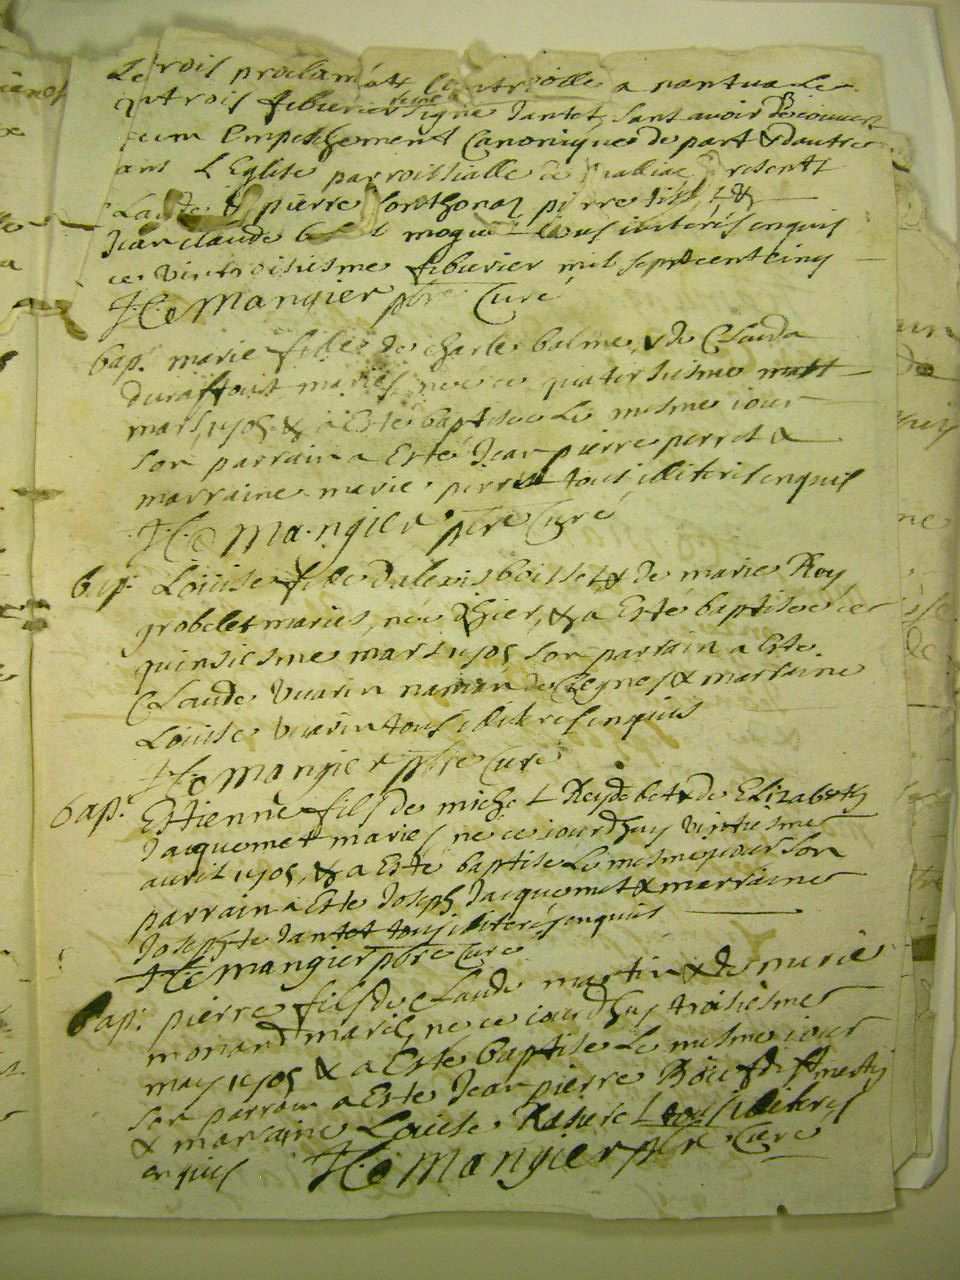 Le trois proclamāōs controlle a nantua le
vintrois feburier signé Jantet, sans avoir découvert
aucun Empeschement Canonique de part & dautre
L'Eglise parroissialle de presents
Claude & pierre Sonthonaz pierre
Jean claude tous illiterés enquis
ce vintroisiesme feburier mil sept cent cinq
H: C: Mangier pbre Curé
bap. marie fille de charle balme, & de Clauda
duraffour mariés, née ce quatorsiesme
mars 1705 & a esté baptisée Le mesme iour
Son parrain a Esté Jean pierre perret &
marraine marie perret tous illiterés enquis
H: C: Mangier pbre Curé
bap. Loüise fille dalexis boisset & de marie Rey
grobelet mariés, née Hier, & a Esté baptisée ce
quinsiesme mars 1705 Son parrain a Esté
Claude Vuarin & marraine
Loüise Vuarin tous illiterés enquis
H: C: Mangier pbre Curé
bap. Estienne fils de michel Reydebet & de Elizabeth
Jacquemet mariés, né ce iourdhuy vintiesme
auril 1705, & a Esté baptisé Le mesme iour Son
parrain a Esté Joseph Jacquemet & marraine
Josephte Jantet tous illiterés enquis
H: C: Mangier pbre Curé
bap. pierre fils de Claude martin & de marie
monard mariés, né ce iourdhuy troisiesme
may 1705 & a Esté baptisé Le mesme iour
Son parrain a Esté Jean pierre
& marraine Loüise tous illiterés
enquis H: C: Mangier pbre Curé